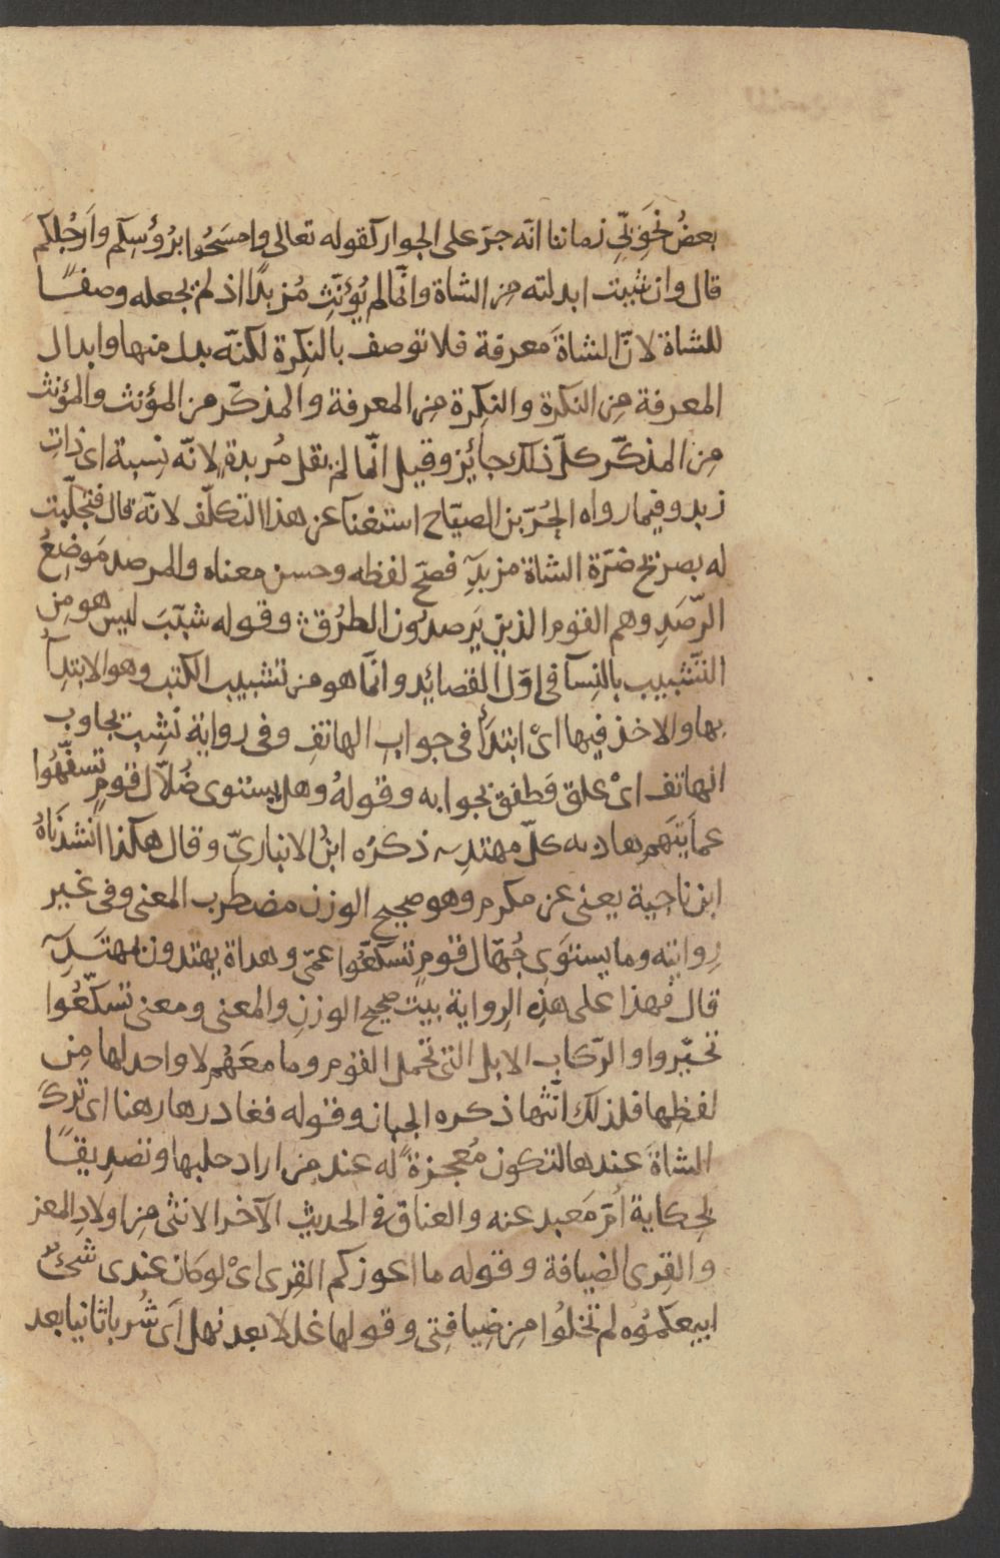 بعضُ نحَوِيّي زماننا انّه جرّ على الجوار كقوله تعالى وامسَحُوا برُؤُسِكم وأَرجُلِكم
قال وان شيت ابدلته مِن الشاة وانّما لم يُؤَنّثِ مُزبدًا اذ لم يجعله وصفًا
للشاة لانّ الشاةَ معرفة فلا توصف بالنكِرة لكنّه بدل منها وابدال
المعرفة مِن النكرة والنكِرة مِن المعرفة والمذكّر من المؤنث والمؤنث
مِن المذكّر كلّ ذلك جايُز وقيل انّما لم يقل مُزبدة لانّه نِسبة اى ذات
زبد وفيما رواه الحُرّ بن الصيّاح استغنآ عن هذا التكلّف لانّه قال فتحلّبت
له بصريح ضَرّة الشاة مزبدِ فصَحّ لفظه وحسن معناه والمرصد مَوضِعُ
الرّصَدِ وهم القوم الذين يَرصدُون الطرُق وقوله شبّبَ ليس هو مِن
التّشبيب بالنِسآ فى اوّل القصائِد وانّما هو من تشبيب الكتب وهو الابتدآُ
بها والاخذ فيها اىْ ابتدَأَ فى جوابِ الهاتفِ وفى رواية نَشِبَ يجاوب
الهاتف اىْ علق فَطفق بجوابه وقولهُ وهل يستوى ضُلّال قومٍ تسفّهُوا
عمايَتَهم هادٍ به كلّ مهتدِ ذكرُه ابنُ الانبارىّ وقال هكذا أنشدَناهُ
ابن ناجية يعنى عن مكرم وهو صحيح الوزن مضطرب المعنى وفى غير
رِوايتِه وما يستوَى جُهّال قومٍ تسَكّعُوا عمّى وهداة يهتدون بمهتَدِ
قال فهذا على هذِه الرِواية بيت صحيح الوزنِ والمعنى ومعنى تسَكّعُوا
تحيّروا والرّكاب الابل التى تحمل القوم وما معَهُم لا واحد لها مِن
لفظِها فلذلك انّثها ذكره الجبان وقوله فغادرها رهنا اى تركَ
الشاةَ عندها لتكون مُعجزةً له عند مِن اراد حلبها وتصدِيقًا
لحِكاية أُمّ مَعبد عنه والعناق فى الحديث الآخر الانثى مِن اولادِ المعز
والقِرى الضيافة وقوله ما اعوزكم القِرى اىْ لو كان عندى شَىْءٌ
ابيعكموُه لم تخلُوا مِن ضِيافتِى وقولها عللا بعد نهل اَى شُربا ثانيا بعد